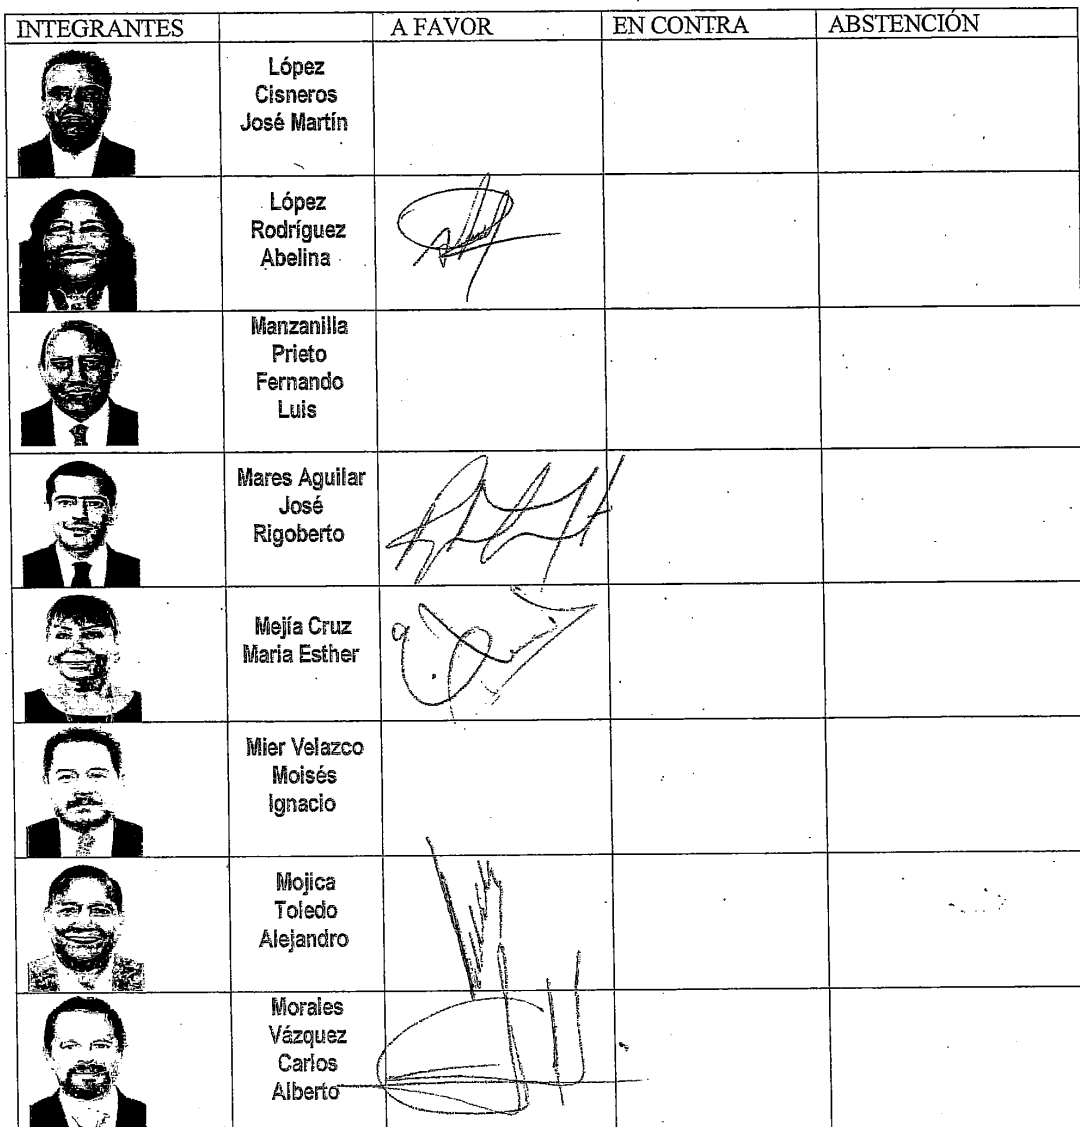 INTEGRANTES A FAVOR EN CONTRA ABSTENCIÓN
López
Cisneros
José Martín
López
Rodríguez
Abelina
Manzanilla
Prieto
Fernando
Luis
Mares Aguilar
José
Rigoberto
Mejía Cruz
Maria Esther
Mier Velazco
Moisés
Ignacio
Mojica
Toledo
Alejandro
Morales
Vázquez
Carlos
Alberto